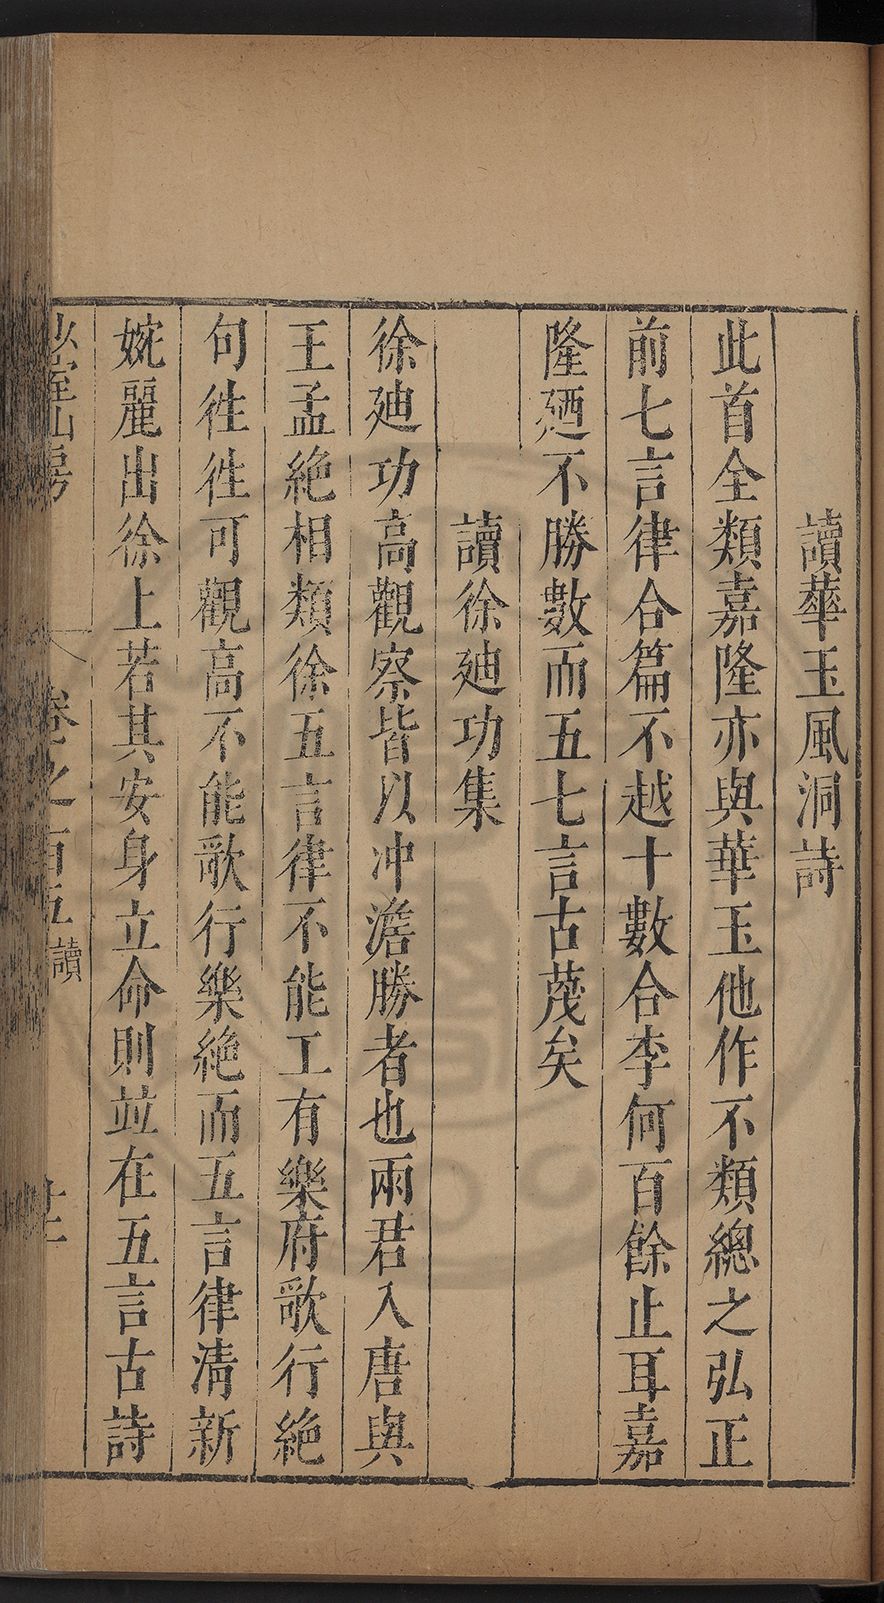 讀華玉風洞詩
此首全類嘉隆亦與華玉他作不類總之弘正
前七言律合篇不越十數合李何百餘止耳嘉
隆廼不勝數而五七言古蔑矣
讀徐廸功集
徐廸功高觀察皆以冲澹勝者也兩君入唐與
王孟絶相類徐五言律不能工有樂府歌行絶
句徃徃可觀高不能歌行樂絶而五言律清新
婉麗出徐上若其安身立命則並在五言古詩
山房
卷之百五
讀